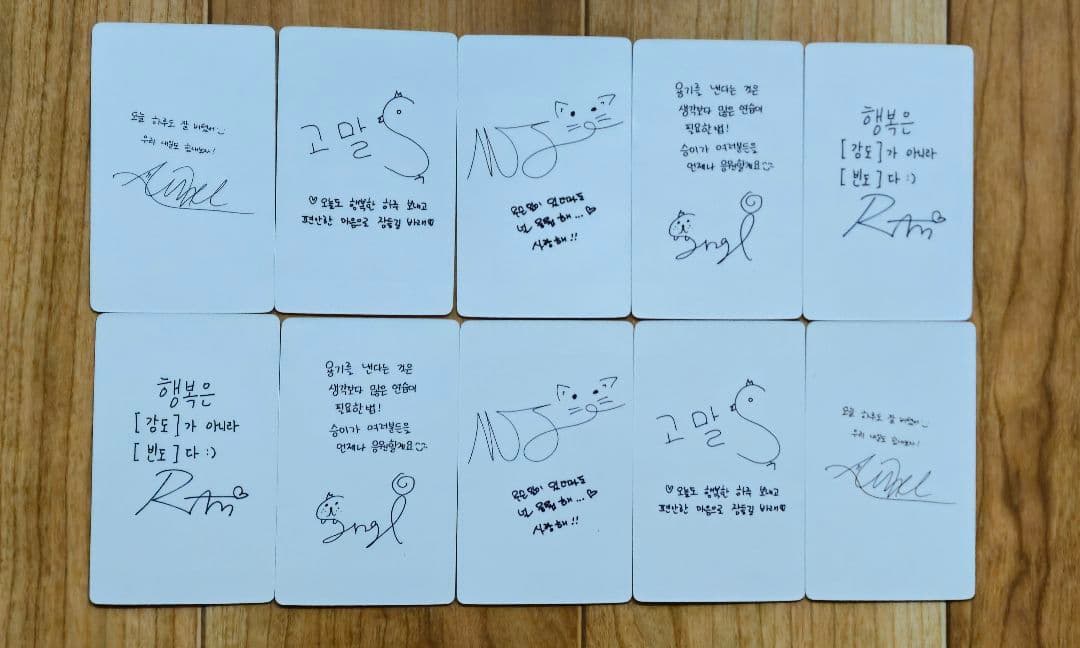 오늘 하루도 잘 버텼어
우리 내일도 힘내보자!
고말
♡오늘도 행복한 하루 보내고
편안한 마음으로 잠들길 바래♡
NJ
넌 응원해...♡
사랑해!!
용기를 낸다는 것은
생각보다 많은 연습이
필요한 법!
승이가 여러분들은
언제나 응원할게요
행복은
[강도]가 아니라
[빈도]다 :)
Ran
행복은
[강도]가 아니라
[빈도]다 :)
Ran
용기를 낸다는 것은
생각보다 많은 연습이
필요한 법!
승이가 여러분들은
언제나 응원할게요
NJ
넌 응원해...♡
사랑해!!
고말
♡오늘도 행복한 하루 보내고
편안한 마음으로 잠들길 바래♡
오늘 하루도 잘 버텼어
우리 내일도 힘내보자!